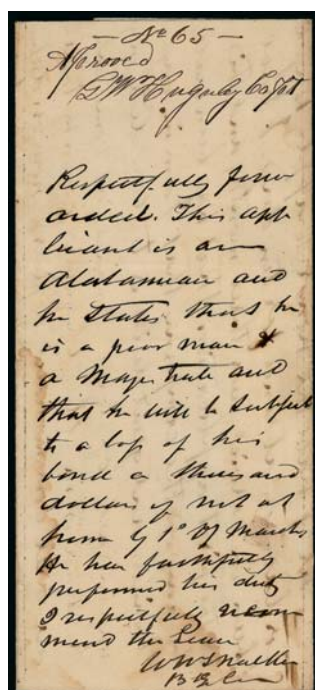 — No 65 —
Approved
G W Huguley Co
Respectfully forw
arded. This app
licant is an
Alabamian and
he States that he
is a poor man &
a Magistrate and
that he will be subject
to a loss of his
bond a thousand
dollars if not at
home by 1st of March
He has faithfully
performed his duty
I respectfully recom
mend the leave